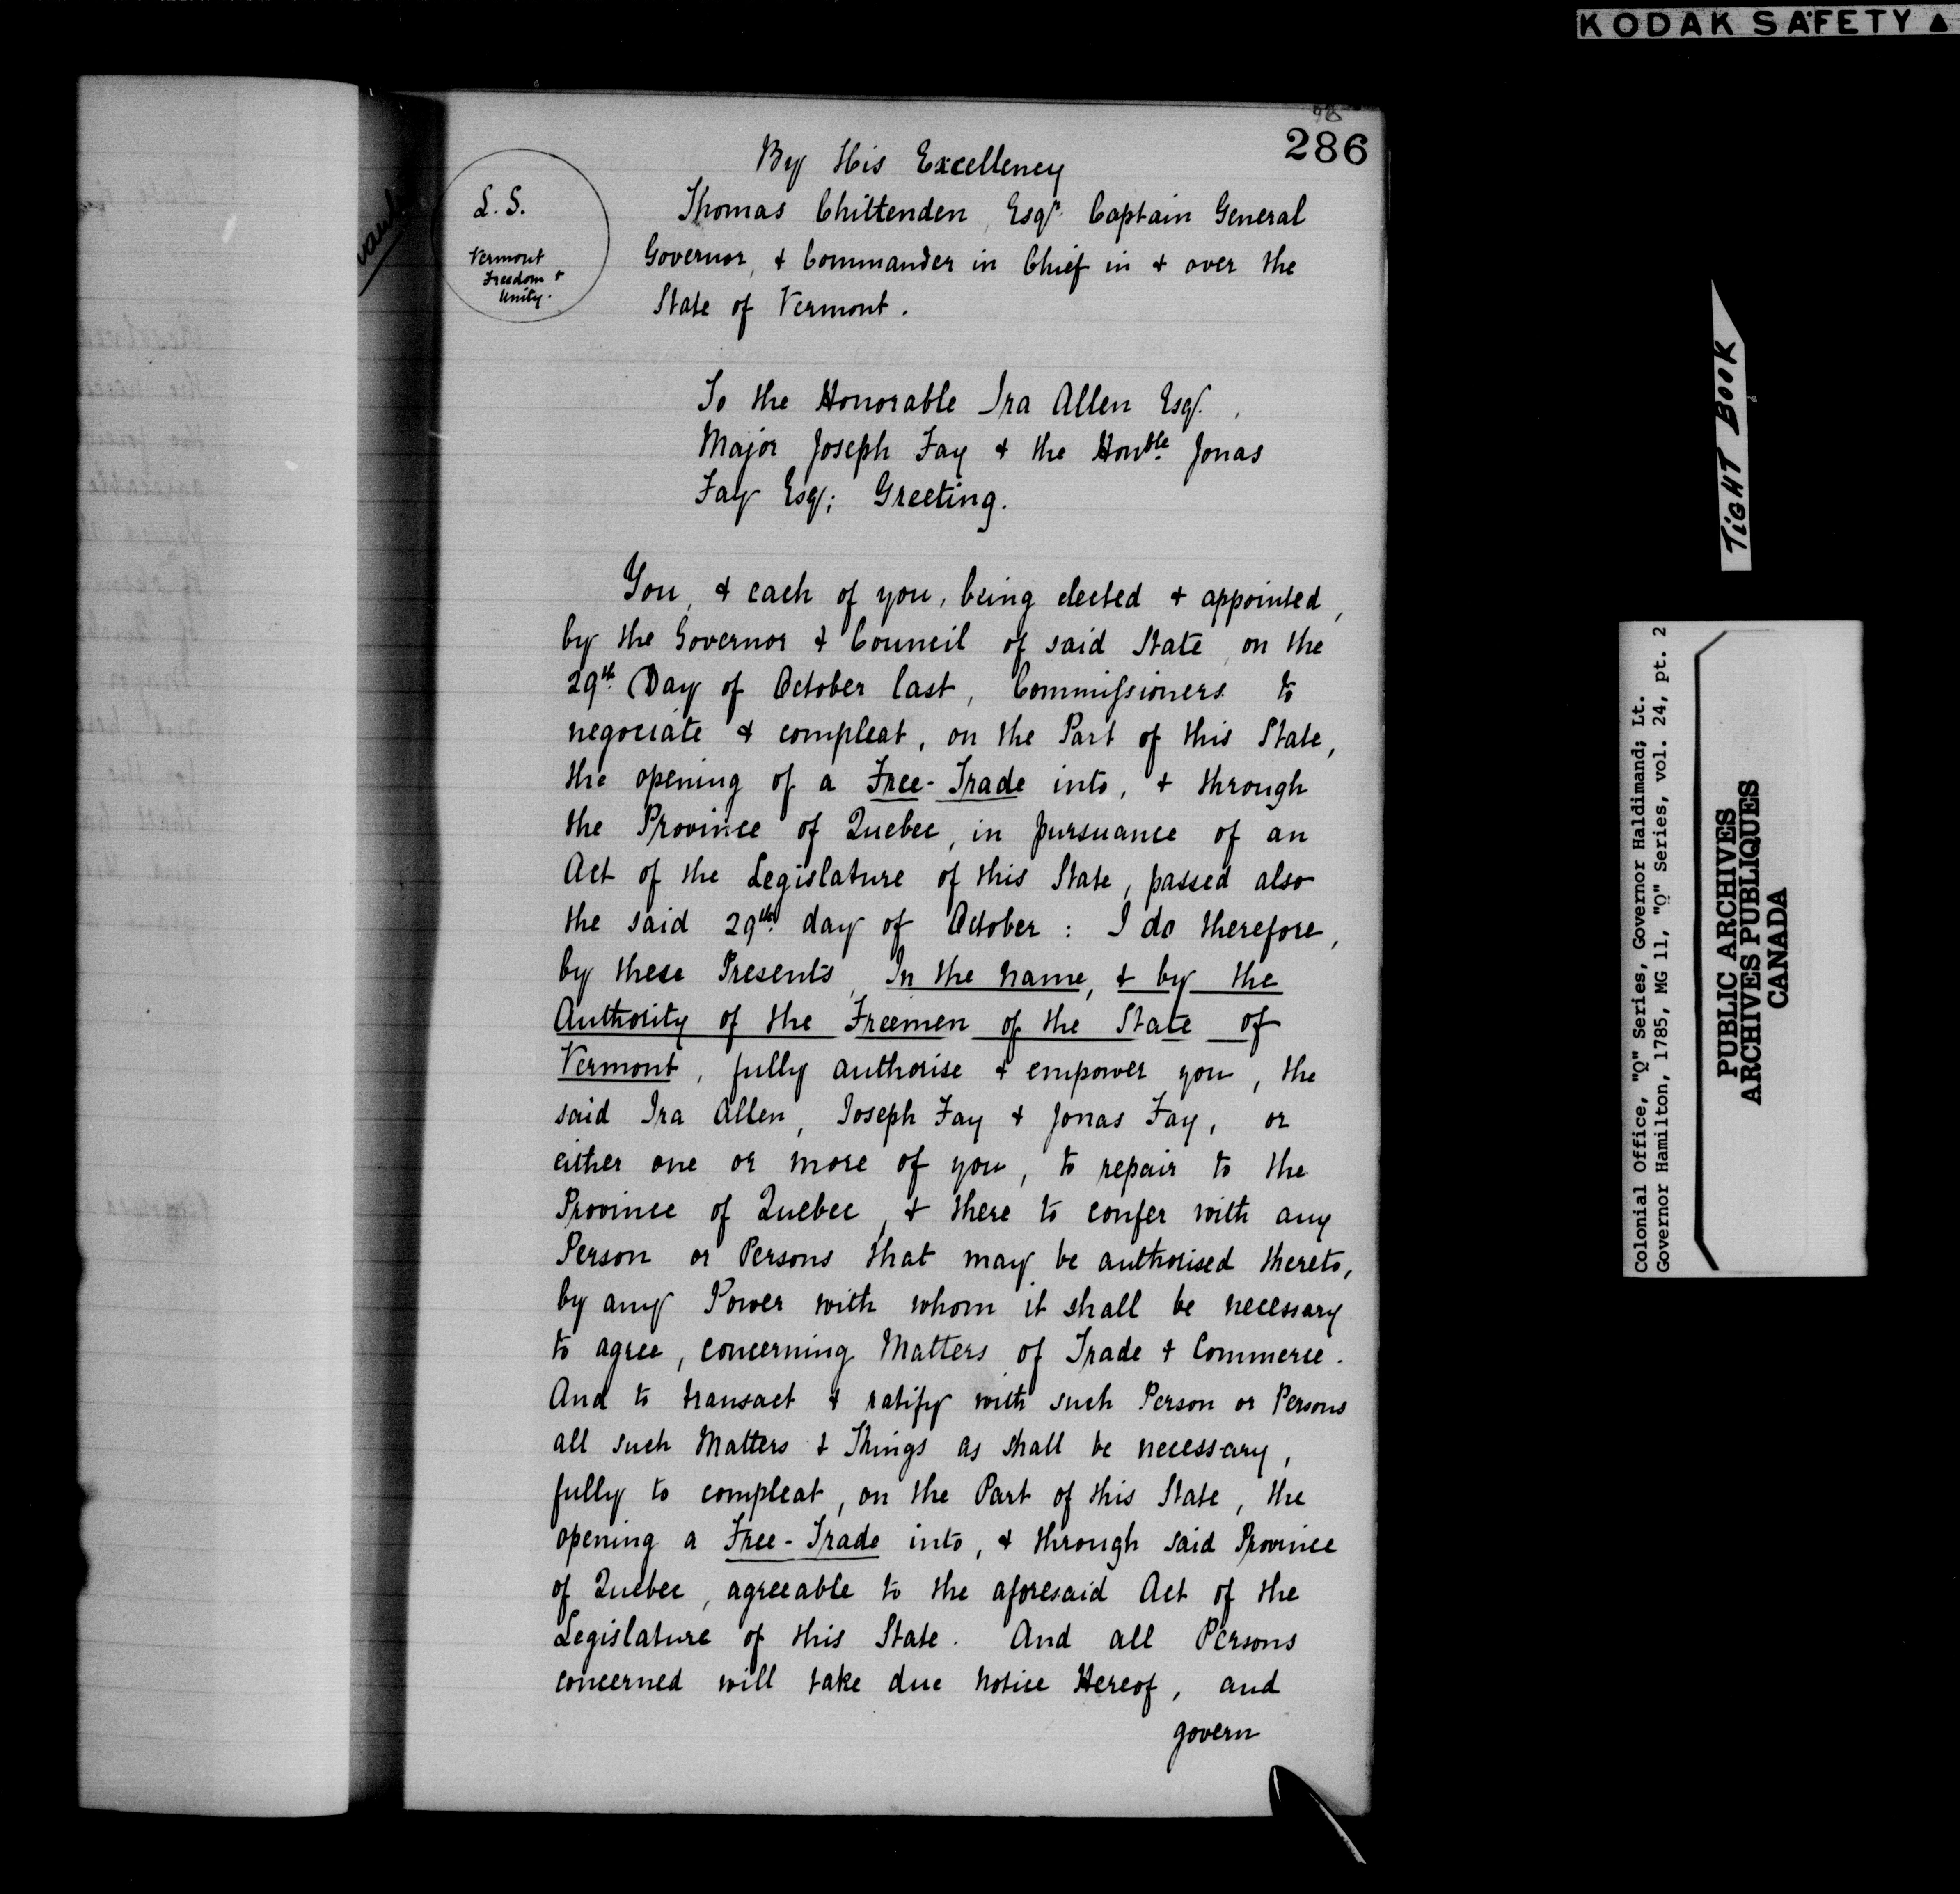 KODAK SAFETY
286
By His Excellency
L. S.
Vermont
Freedom &
Unity.
Thomas Chittenden, Esqr. Captain General
Governor, & Commander in Chief in & over the
State of Vermont.
To the Honorable Ira Allen Esqr.,
Major Joseph Fay & the Honble. Jonas
Fay Esqr; Greeting.
You, & each of you, being elected & appointed,
by the Governor & Council of said State, on the
29th. Day of October last, Commissioners to
negociate & compleat, on the Part of this State,
the opening of a Free-Trade into, & through
the Province of Quebec, in pursuance of an
Act of the Legislature of this State, passed also
the said 29th. day of October: I do therefore,
by these Presents, In the name, & by the
Authority of the Freemen of the State of
Vermont, fully authorise & empower you, the
said Ira Allen, Joseph Fay & Jonas Fay, or
either one or more of you, to repair to the
Province of Quebec, & there to confer with any
Person or Persons that may be authorised thereto,
by any Power with whom it shall be necessary
to agree, concerning Matters of Trade & Commerce.
And to transact & ratify with such Person or Persons
all such Matters & Things as shall be necessary,
fully to compleat, on the Part of this State, the
opening a Free-Trade into, & through said Province
of Quebec, agreeable to the aforesaid Act of the
Legislature of this State. And all Persons
concerned will take due notice Hereof, and
govern
TIGHT BOOK
Colonial Office, "Q" Series, Governor Haldimand; Lt.
Governor Hamilton, 1785, MG 11, "Q" Series, vol. 24, pt. 2
PUBLIC ARCHIVES
ARCHIVES PUBLIQUES
CANADA